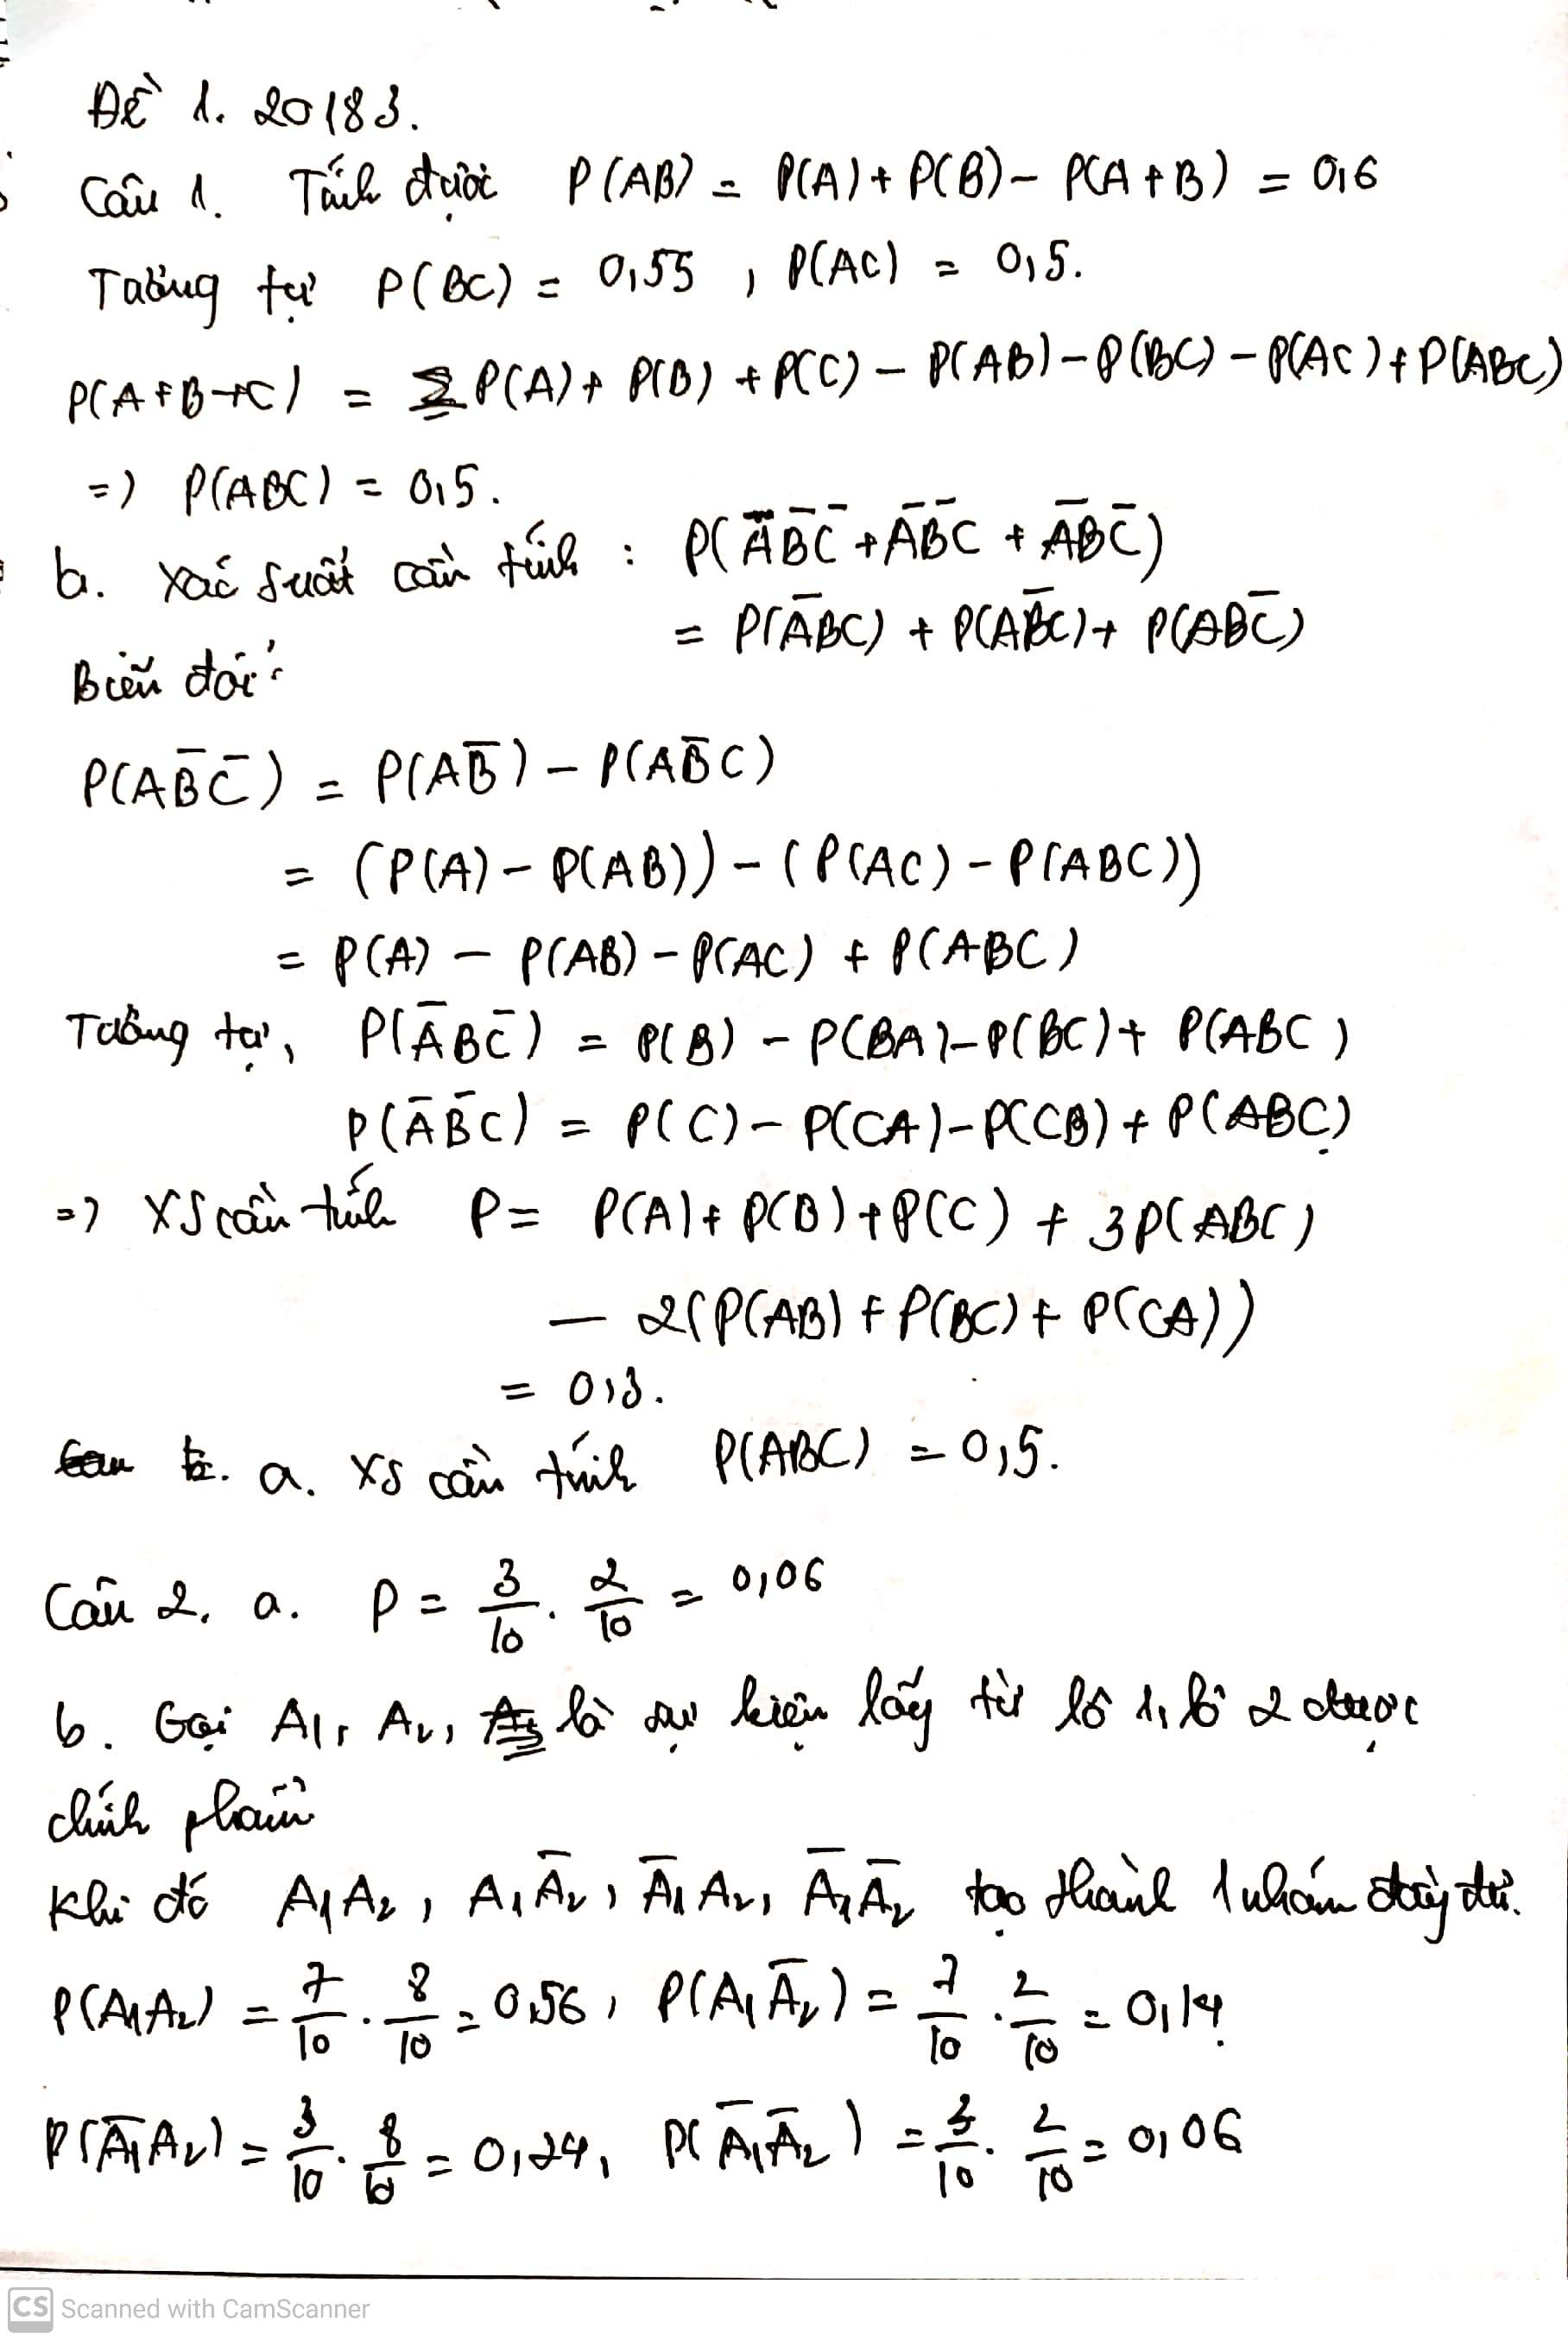 Đề 1. 20183.
Câu 1. Tính được P(AB) = P(A) + P(B) - P(A+B) = 0,6
Tương tự P(BC) = 0,55 , P(AC) = 0,5.
P(A+B+C) = P(A) + P(B) + P(C) - P(AB) - P(BC) - P(AC) + P(ABC)
=) P(ABC) = 0,5.
b. Xác suất cần tính : P(A\overline{B}\overline{C} + \overline{A}\overline{B}C + \overline{A}B\overline{C})
= P(\overline{A}BC) + P(A\overline{B}C) + P(AB\overline{C})
Biến đổi:
P(A\overline{B}\overline{C}) = P(A\overline{B}) - P(A\overline{B}C)
= (P(A) - P(AB)) - (P(AC) - P(ABC))
= P(A) - P(AB) - P(AC) + P(ABC)
Tương tự, P(\overline{A}B\overline{C}) = P(B) - P(BA) - P(BC) + P(ABC)
P(\overline{A}\overline{B}C) = P(C) - P(CA) - P(CB) + P(ABC)
=) XS cần tính P = P(A) + P(B) + P(C) + 3P(ABC)
- 2(P(AB) + P(BC) + P(CA))
= 0,3.
a. XS cần tính P(ABC) = 0,5.
Câu 2. a. P = \frac{3}{10} . \frac{2}{10} = 0,06
b. Gọi A1, A2, là sự kiện lấy từ lô 1, lô 2 được
chính phẩm
Khi đó A1A2, A1\overline{A}2, \overline{A}1A2, \overline{A}1\overline{A}2 tạo thành 1 nhóm đầy đủ.
P(A1A2) = \frac{7}{10} . \frac{8}{10} = 0,56, P(A1\overline{A}2) = \frac{7}{10} . \frac{2}{10} = 0,14
P(\overline{A}1A2) = \frac{3}{10} . \frac{8}{10} = 0,24, P(\overline{A}1\overline{A}2) = \frac{3}{10} . \frac{2}{10} = 0,06
CS Scanned with CamScanner